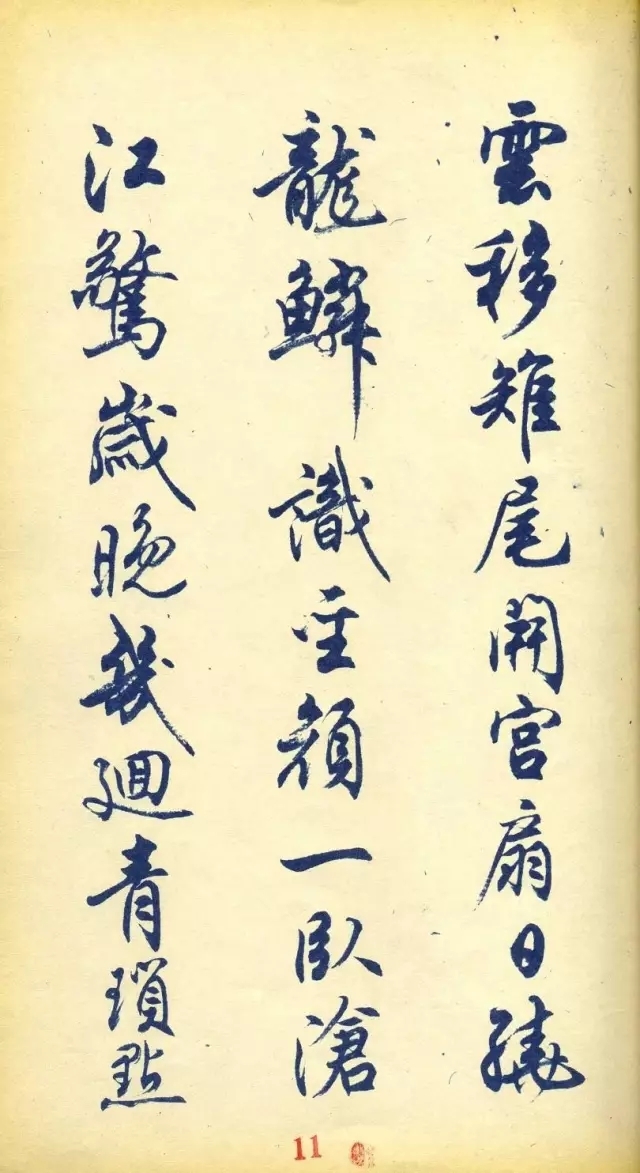 雲移雉尾開宮扇日繞
龍鱗識聖顏一臥滄
江驚歲晚幾迴青瑣點
11